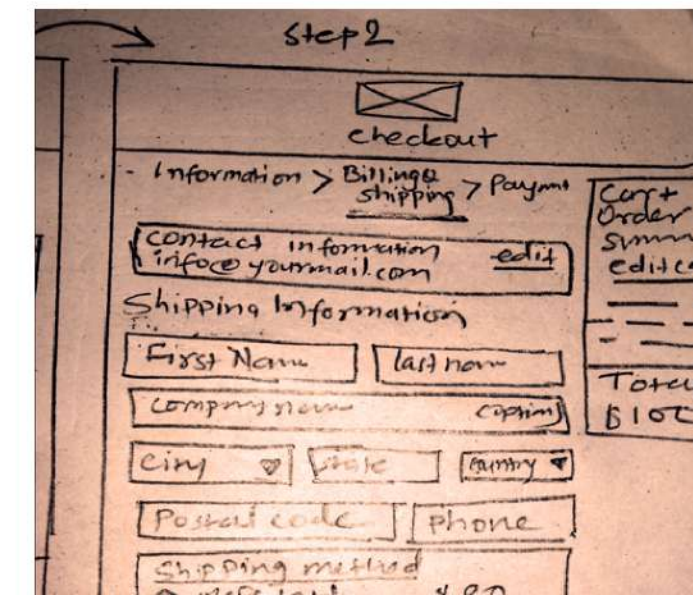 Step2
checkout
Information > Billing &
shipping > Paymnt
Contact information edit
info@yourmail.com
Shipping Information
First Name
last nam
Company name
City
State
Country
Postal code
phone
Shipping method
Cart
Order
edit
Total